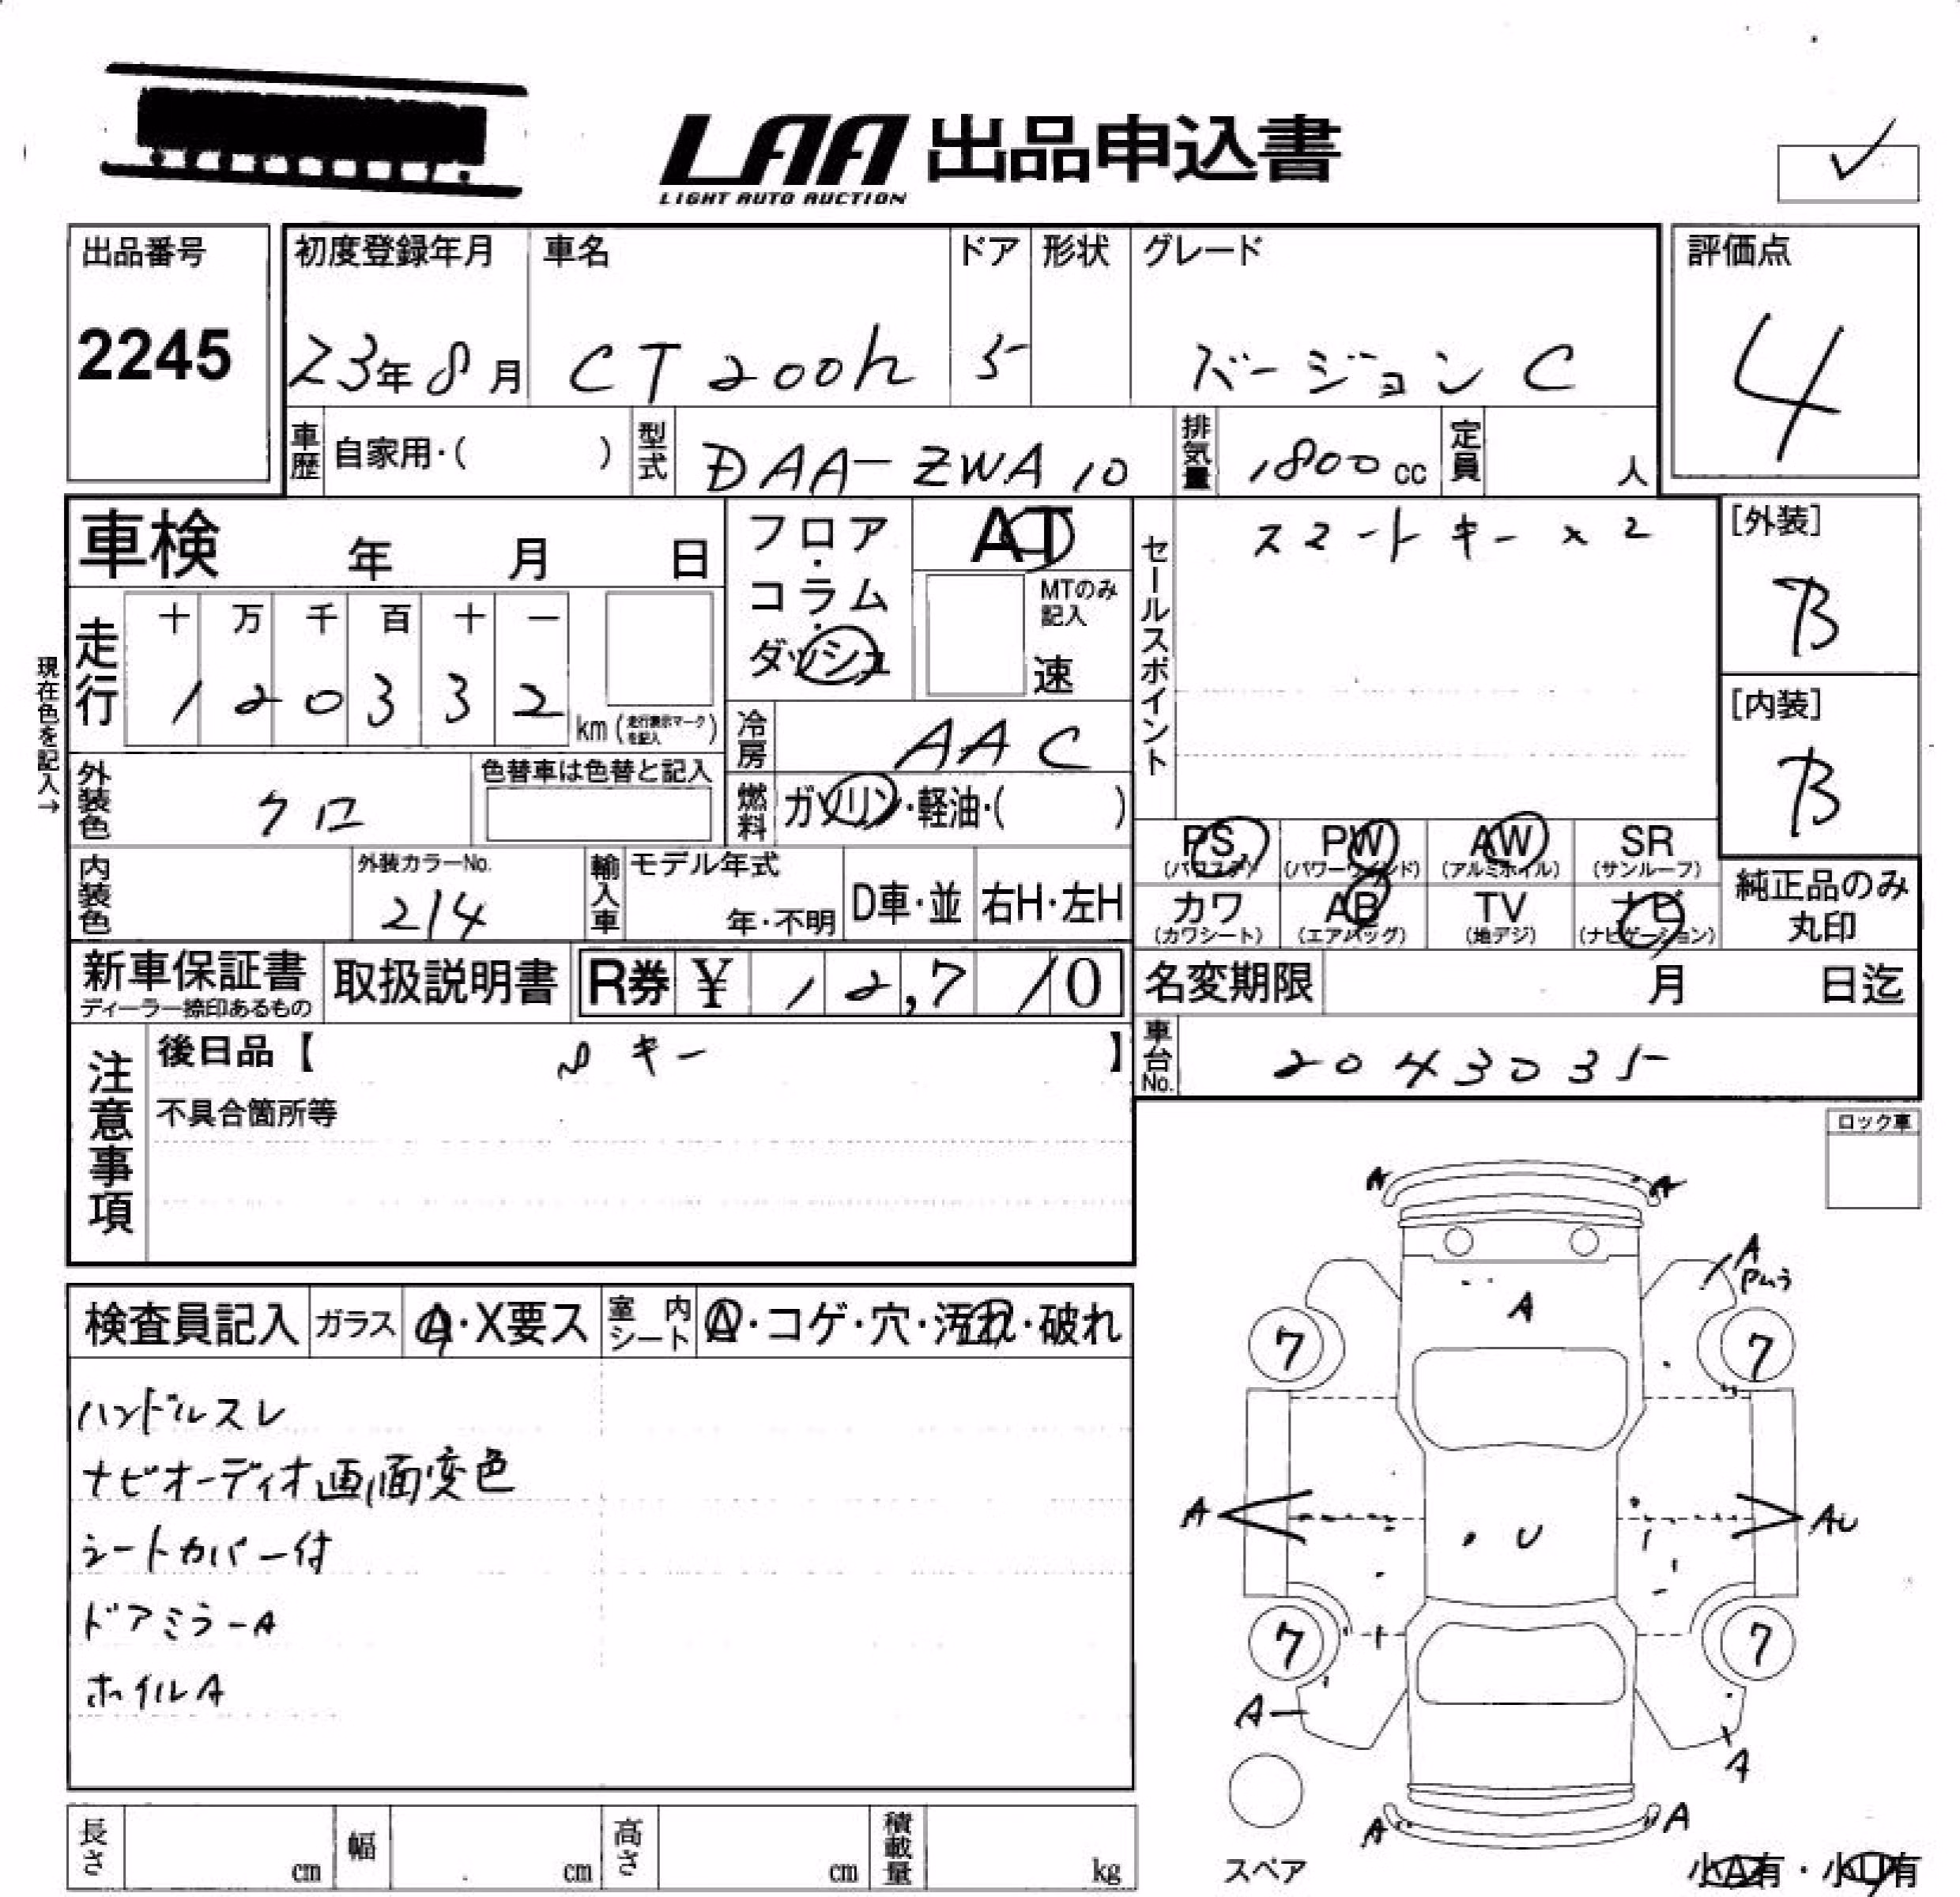 LAA 出品申込書
LIGHT AUTO AUCTION
出品番号
2245
初度登録年月 車名 ドア 形状 グレード
23年 8月 CT200h 5 バージョン C
評価点
4
車歴 自家用・( ) 型式 DAA-ZWA10 排気量 1800cc 定員 人
車検 年 月 日
フロア・コラム・ダッシュ
AT
MTのみ記入
速
セールスポイント
スマートキー×2
[外装]
B
[内装]
B
現在色を記入→
走行 十 万 千 百 十 一
1 2 0 3 3 2 km (走行表示マークを記入)
冷房 AAC
外装色 クロ 色替車は色替と記入
燃料 ガソリン・軽油・( )
PS (パワステ) PW (パワーウィンド) AW (アルミホイル) SR (サンルーフ)
カワ (カワシート) AB (エアバッグ) TV (地デジ) ナビ (ナビゲーション)
純正品のみ丸印
内装色 外装カラーNo. 214
輸入車 モデル年式 年・不明 D車・並 右H・左H
新車保証書 ディーラー捺印あるもの
取扱説明書 R券 ¥ 12,710
名変期限 月 日迄
車台No. 2043035
注意事項
後日品【 キー 】
不具合箇所等
ロック車
検査員記入 ガラス A・X要ス 室内シート A・コゲ・穴・汚れ・破れ
ハンドルスレ
ナビオーディオ画面変色
シートカバー付
ドアミラーA
ホイルA
A A
A
A
7 7
A U AU
7 7
A
A
A A
スペア
小A有・小U有
長さ cm 幅 cm 高さ cm 積載量 kg